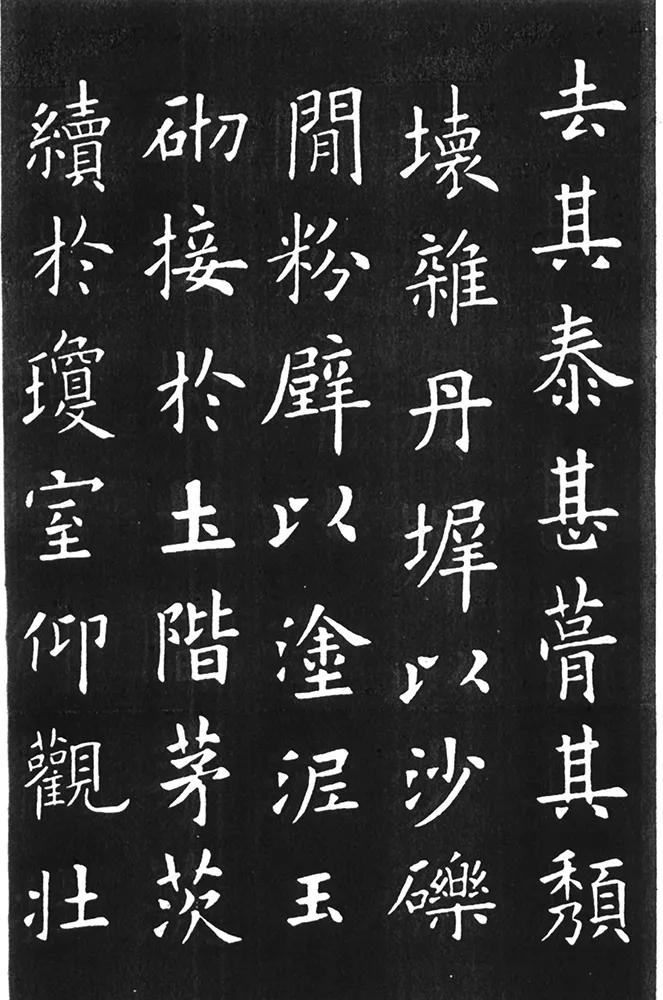 去其泰甚葺其頹
壞雜丹墀以沙礫
閒粉壁以塗泥玉
砌接於土階茅茨
續於瓊室仰觀壯